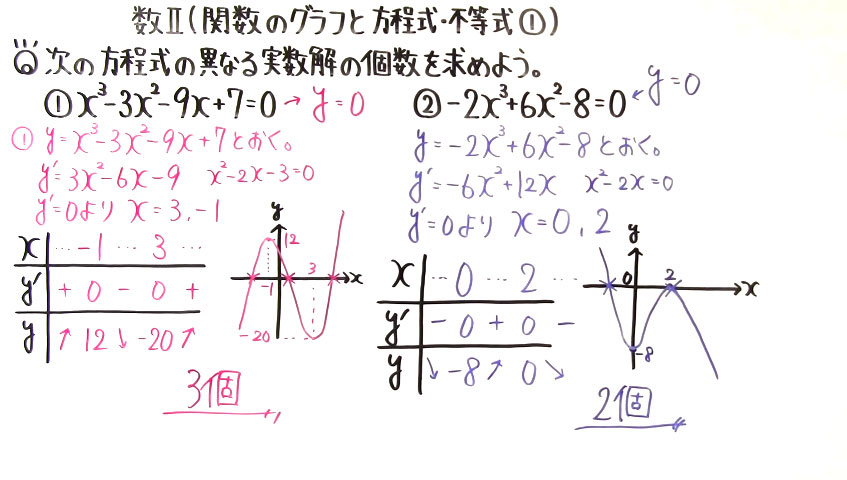 数Ⅱ(関数のグラフと方程式・不等式①)
◎次の方程式の異なる実数解の個数を求めよう。
①x³-3x²-9x+7=0→y=0
①y=x³-3x²-9x+7とおく。
y'=3x²-6x-9 x²-2x-3=0
y'=0より x=3,-1
x … -1 … 3 …
y' + 0 - 0 +
y ↗ 12 ↘ -20 ↗
y
12
3
x
-1
-20
3個
②-2x³+6x²-8=0←y=0
y=-2x³+6x²-8とおく。
y'=-6x²+12x x²-2x=0
y'=0より x=0,2
x … 0 … 2 …
y' - 0 + 0 -
y ↘ -8 ↗ 0 ↘
y
0 2
x
-8
2個